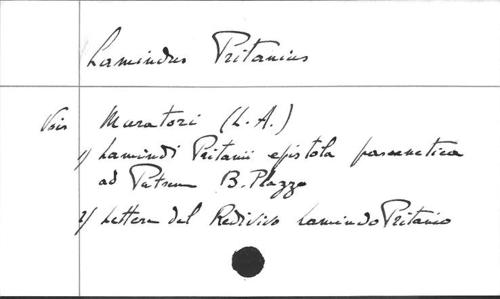 Lamindus Pritanius
Vois Muratori (L.A.)
1/ Lamindi Pritanii epistola paraenetica
ad Patrem B. Plazza
2/ Lettera del Redivivo Lamindo Pritanio